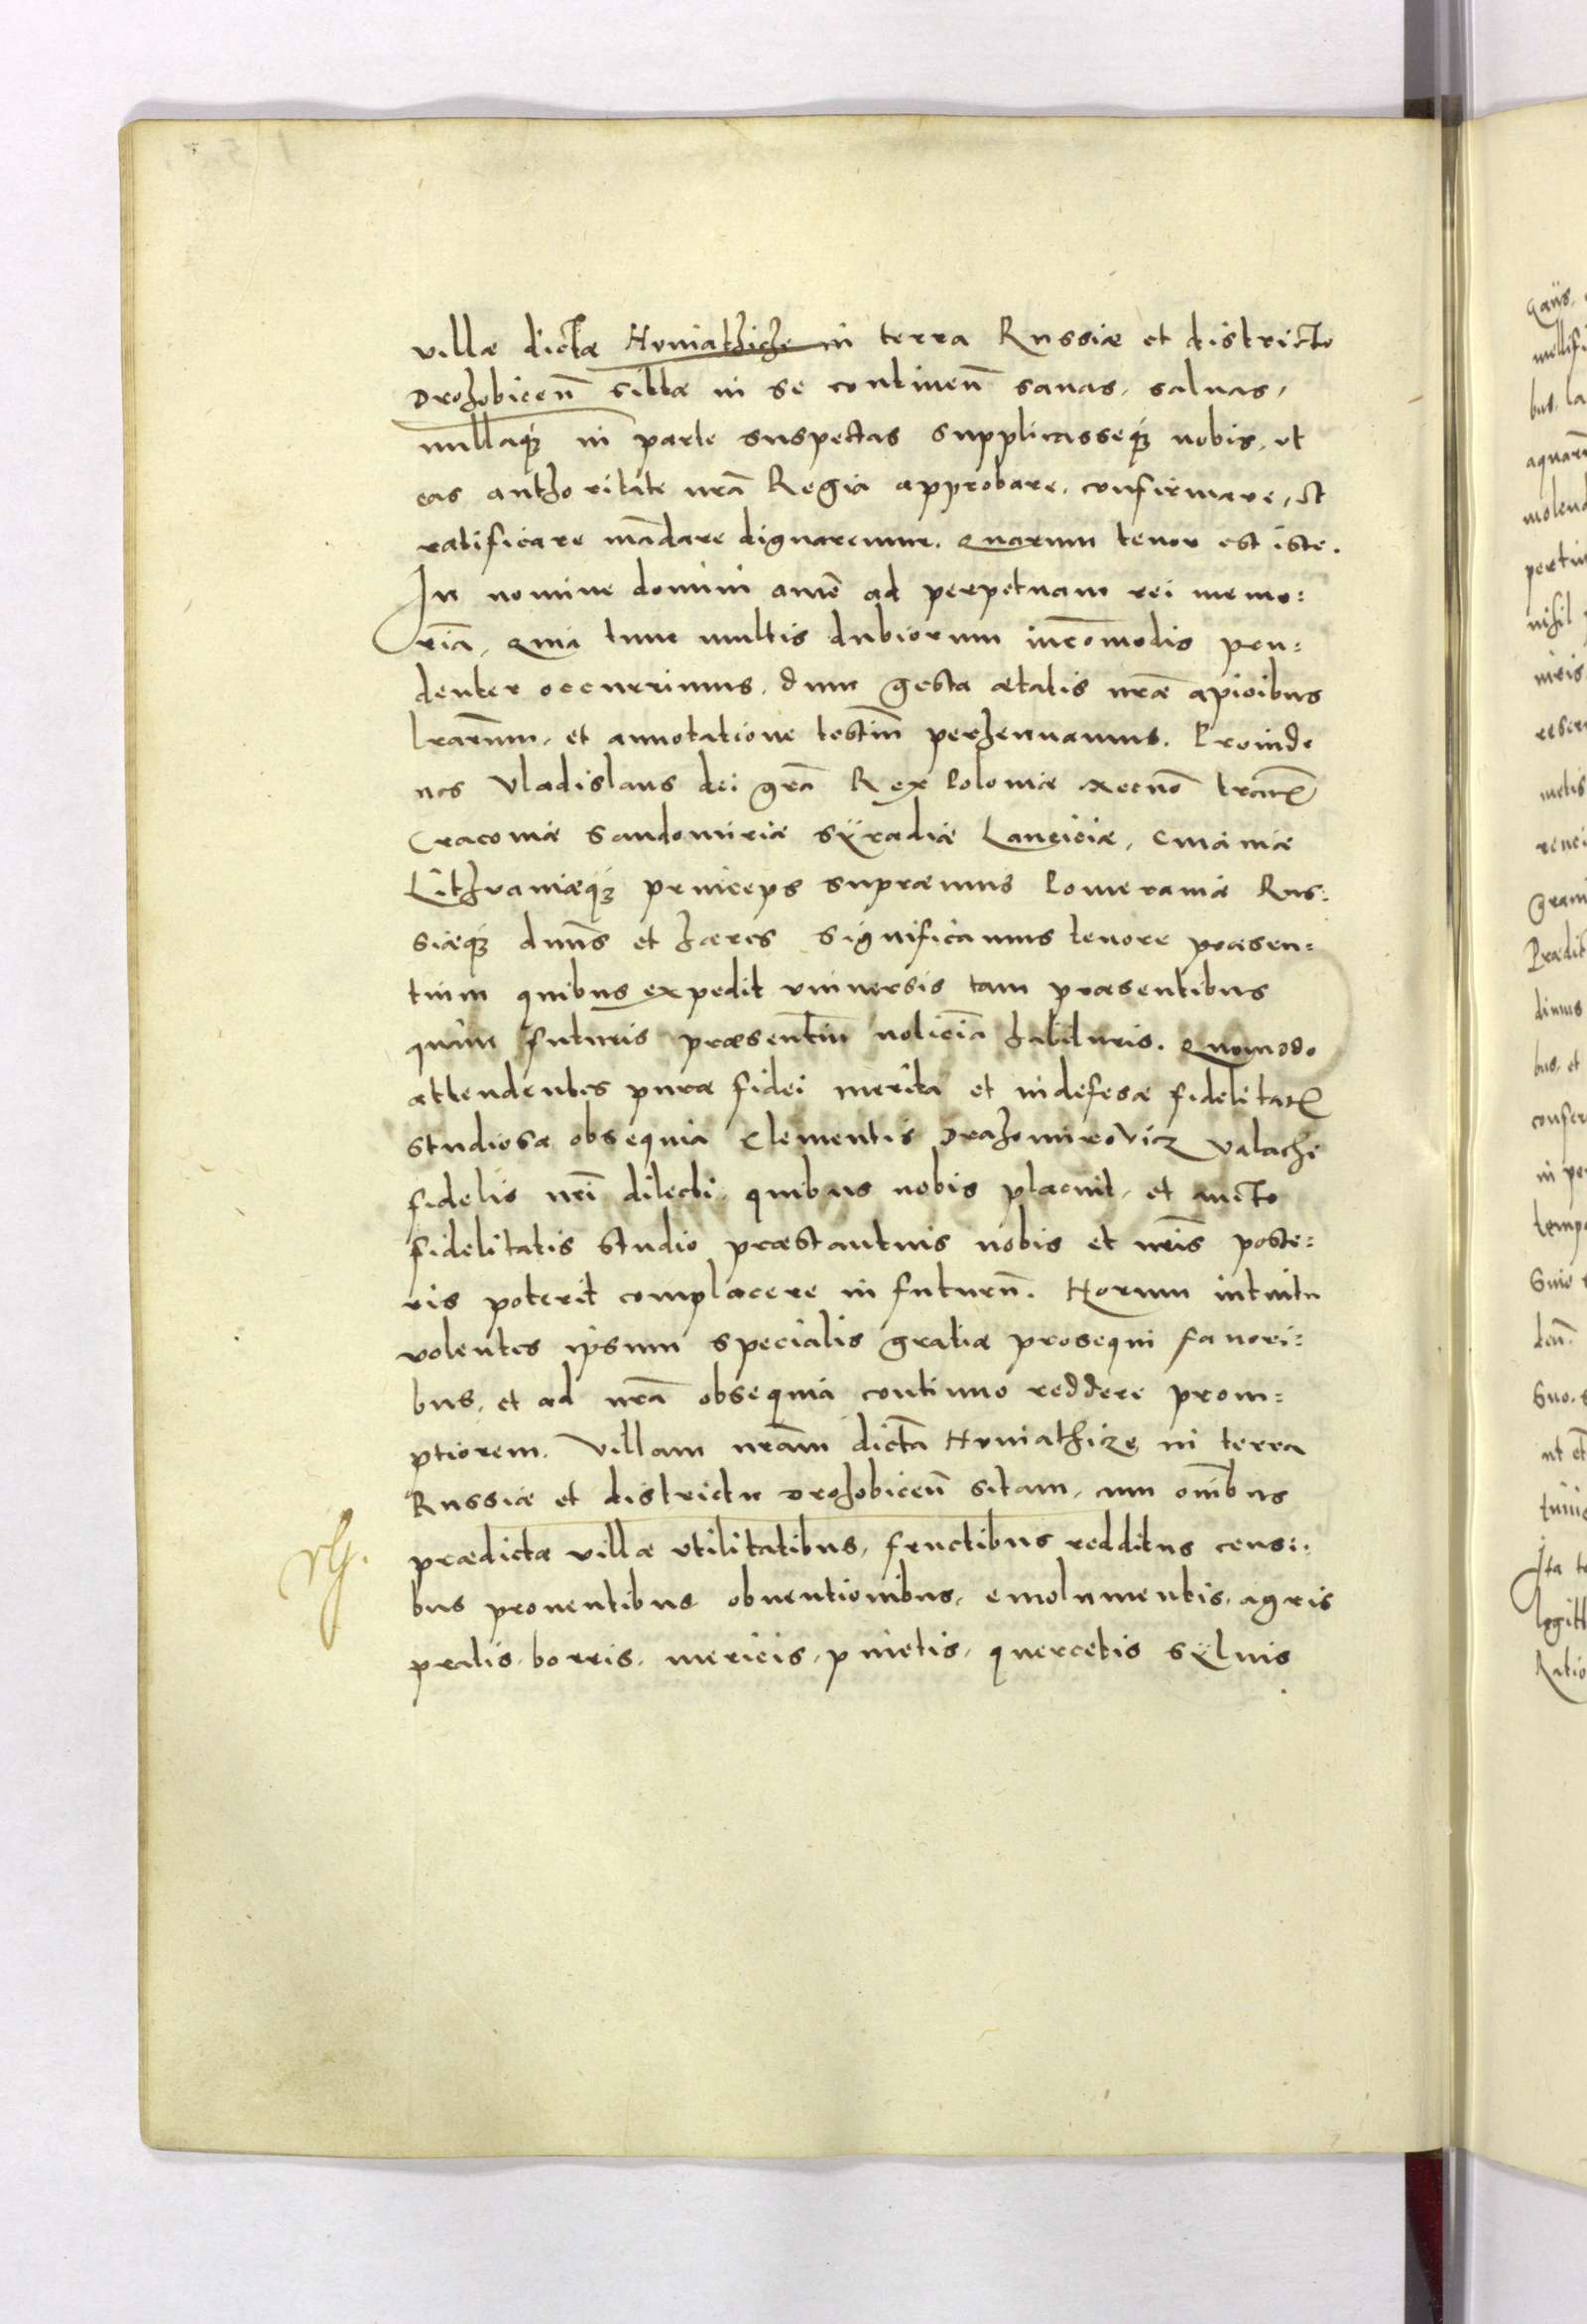 villæ dictæ Hvniathicze in terra Russiæ et districto
Drohobiceñ sittæ in se continen̄ sanas, saluas,
nullaqȝ in parte suspectas supplicasseqȝ nobis, vt
eas authoritate nr̃a Regia approbare, confirmare, et
ratificare mādare dignaremur. Quarum tenor est iste.
In nomine domini amē ad perpetuam rei memo:
riā, Quia tunc multis dubiorum incōmodis pru:
denter occurrimus, dum gesta ætatis nr̃æ apicibus
lr̃arum, et annotatione testiū perhennamus. Proinde
nos Vladislaus dei gr̃a Rex Poloniæ necnō trarū
Cracouiæ Sandomiriæ Sÿradiæ Lanciciæ, Cuiauiæ
Lithvaniæqȝ princeps supræmus Pomeraniæ Rus:
siæqȝ dnn̄s et hæres significamus tenore præsen:
tium quibus expedit vniuersis tam præsentibus
quàm futuris præsentiū noticiā habituris. Quomodo
attendentes puræ fidei merita et indefesæ fidelitatȝ
studiosa obsequia Clementis Drahomirovicz Valachi
fidelis nr̃i dilecti, quibus nobis placuit, et aucto
fidelitatis studio præstantius nobis et nr̃is poste:
ris poterit complacere in futurū. Horum intuitu
volentes ipsum specialis gratiæ prosequi fauori:
bus, et ad nr̃a obsequia continuo reddere prom:
ptiorem. Villam nr̃am dictā Hvniathize in terra
Russiæ et districtu Drohobiceñ sitam, cum oīnibus
prædictæ villæ vtilitatibus, fructibus redditus censi:
bus prouentibus obuentionibus, emolumentis, agris
pratis, borris, mericis, pinetis, quercetis sÿluis